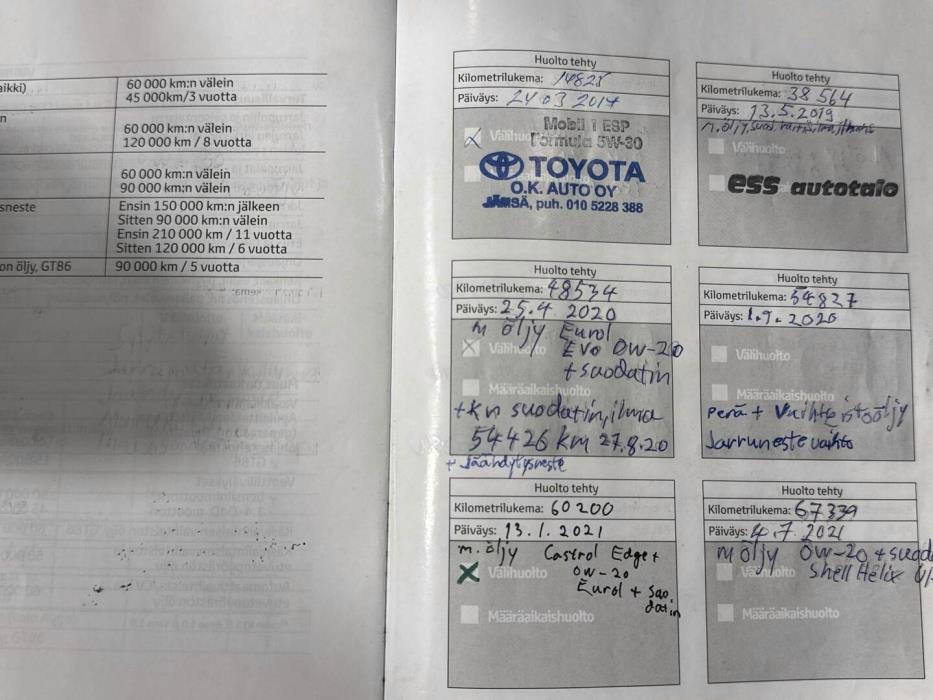 aikki)
60 000 km:n välein
45 000km/3 vuotta
n
60 000 km:n välein
120 000 km / 8 vuotta
60 000 km:n välein
90 000 km:n välein
sneste
Ensin 150 000 km:n jälkeen
Sitten 90 000 km:n välein
Ensin 210 000 km / 11 vuotta
Sitten 120 000 km / 6 vuotta
on öljy, GT86
90 000 km / 5 vuotta
Huolto tehty
Kilometrilukema:
Päiväys: 24 03 2017
Mobil 1 ESP
Välihuolto
Formula 5W-30
TOYOTA
O.K. AUTO OY
JÄMSÄ, puh. 010 5228 388
Huolto tehty
Kilometrilukema: 38 564
Päiväys: 13.5.2019
Välihuolto
ess autotalo
Huolto tehty
Kilometrilukema: 48534
Päiväys: 25.4 2020
m öljy Eurol
Välihuolto
Evo 0W-20
+ suodatin
Määräaikaishuolto
+ kn suodatin, ilma
54426 km 27.8.20
+ Jäähdytysneste
Huolto tehty
Kilometrilukema: 54827
Päiväys: 1.9.2020
Välihuolto
Määräaikaishuolto
Perä + Vaihteistoöljy
Jarruneste vaihto
Huolto tehty
Kilometrilukema: 60200
Päiväys: 13.1.2021
m.öljy Castrol Edge +
Välihuolto
0W-20
Eurol + suodatin
Määräaikaishuolto
Huolto tehty
Kilometrilukema: 67339
Päiväys: 4.7.2021
m öljy 0W-20 + suod
Välihuolto
Shell Helix Ul
Määräaikaishuolto